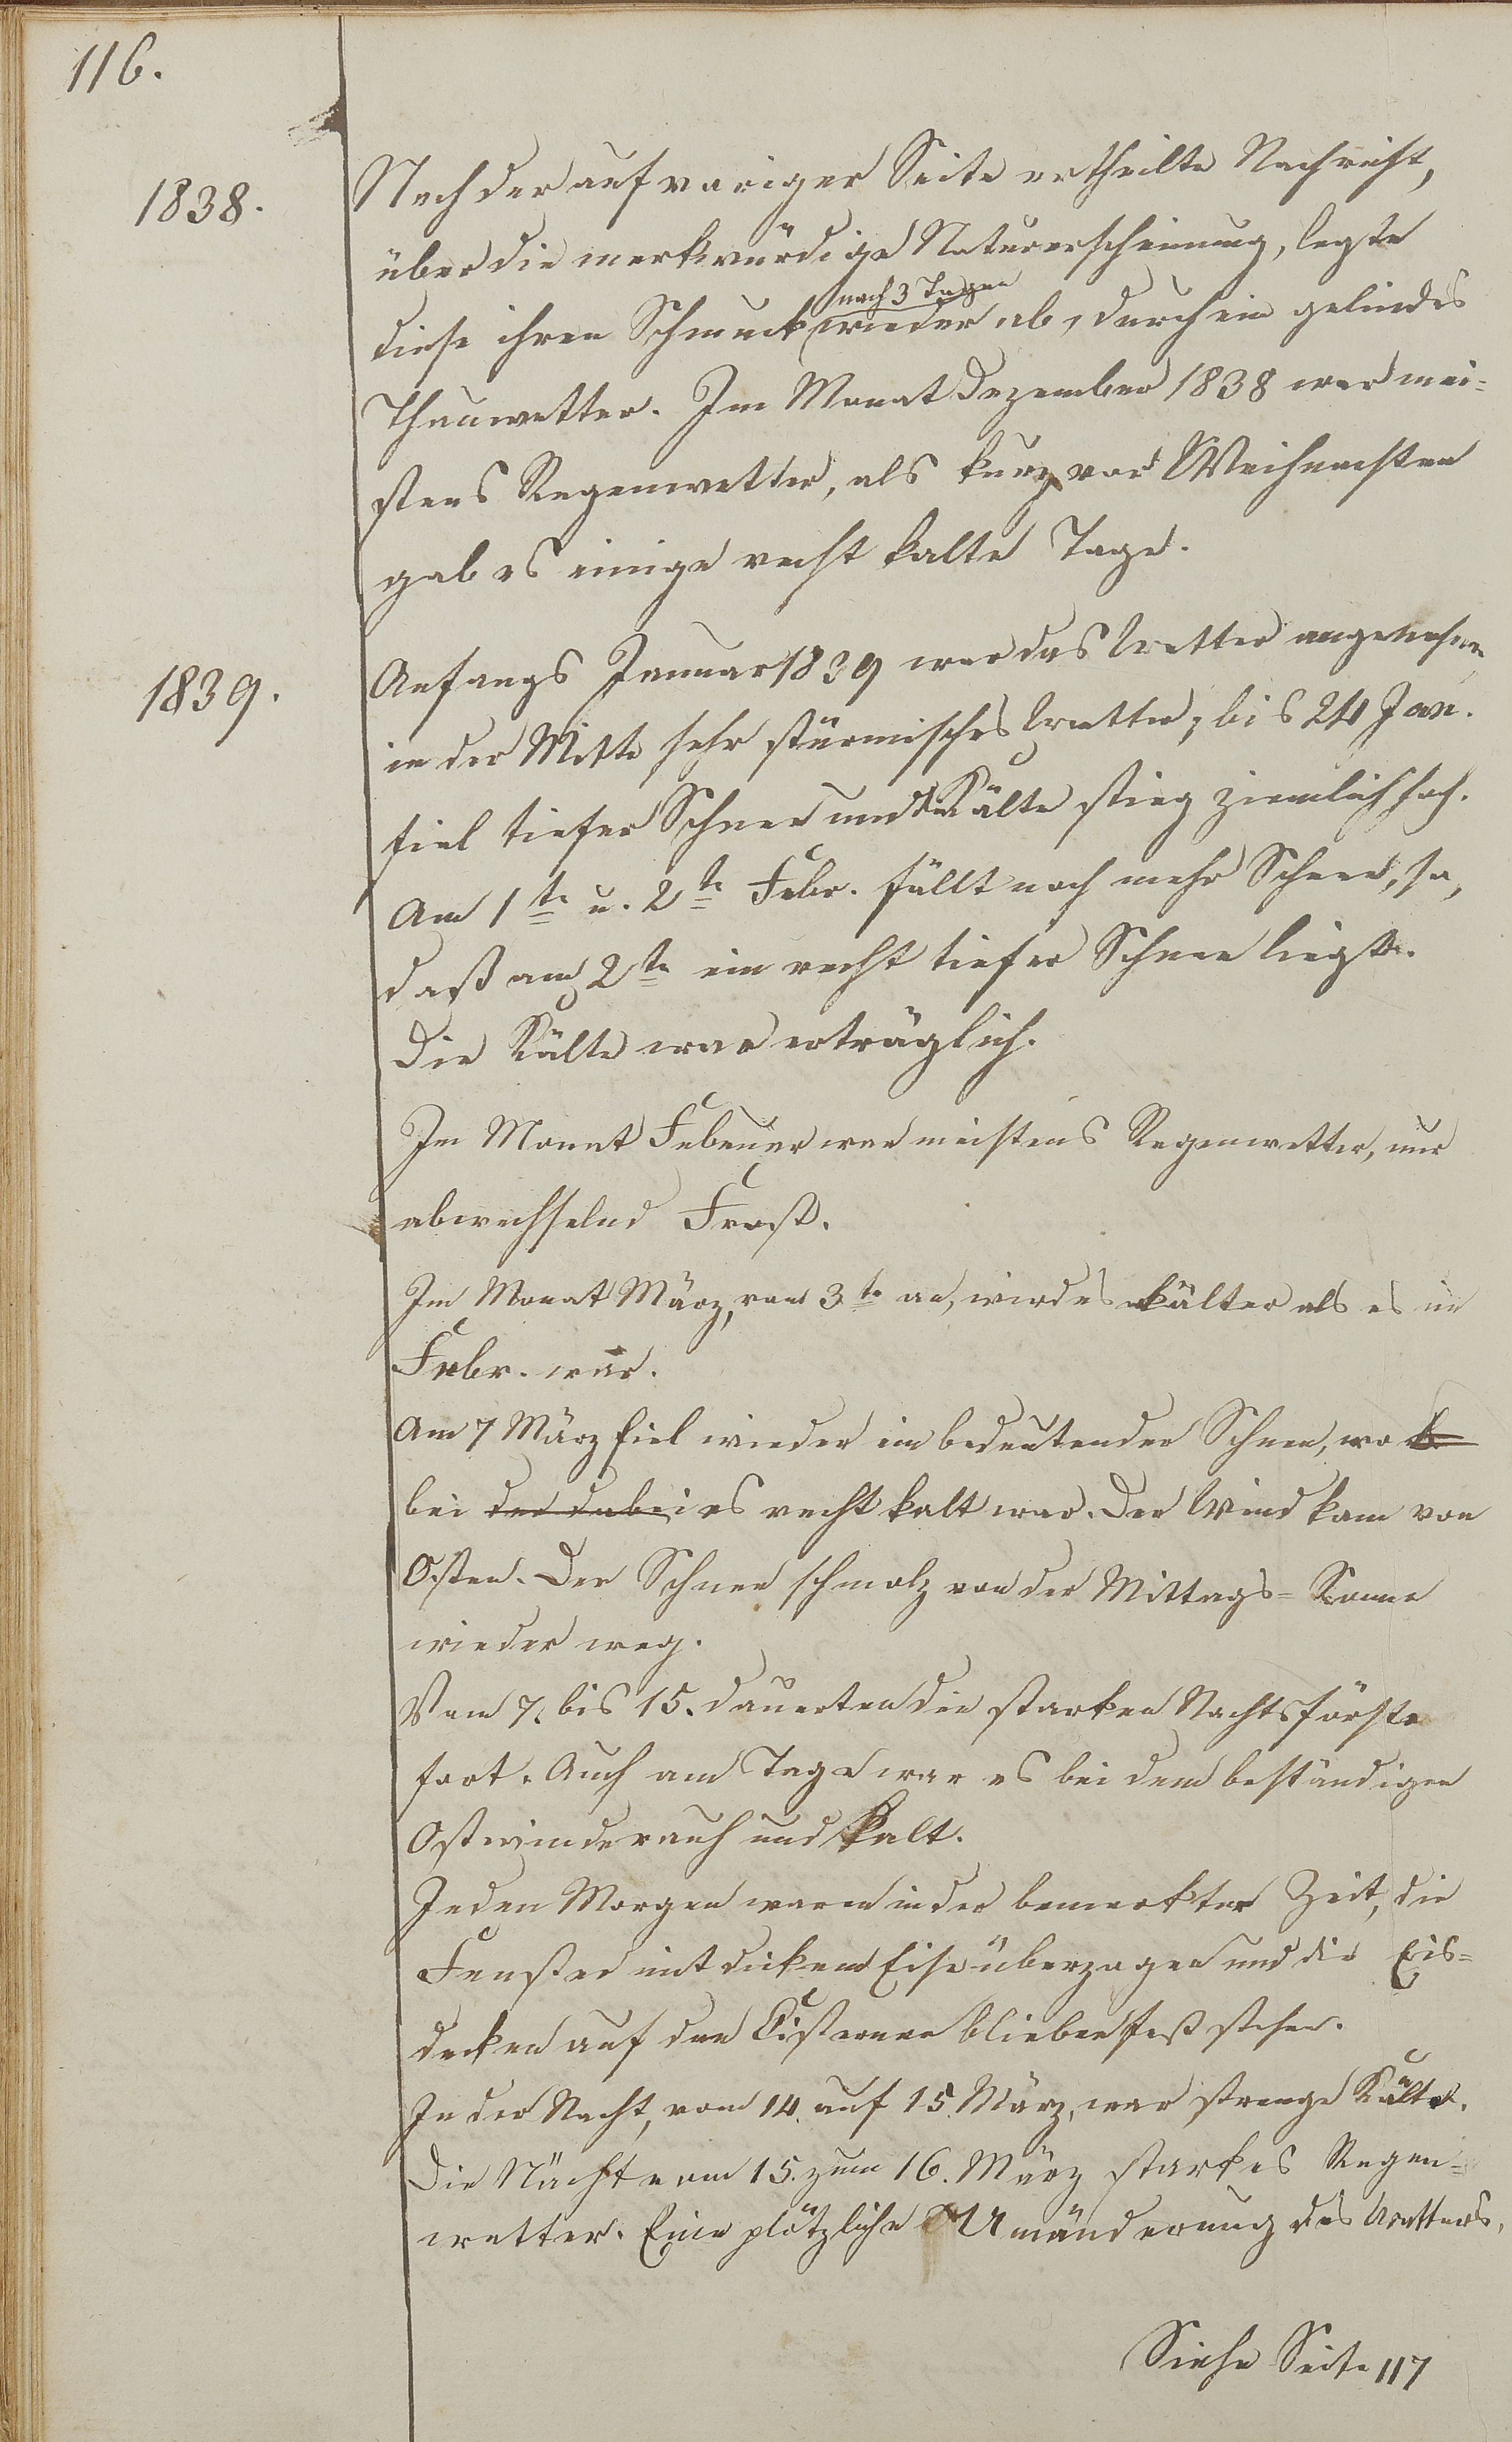 116.
1838.
Nach der auf voriger Seite ertheilte Nachricht,
über die merkwürdige Naturerscheinung, legte
nach 3 Tagen
diese ihren Schmuck wieder ab, durch ein gelindes
Thauwetter. Im Monat Dezember 1838 war mei-
stens Regenwetter, als kurz vor Weihnachten
gab es einige recht kalte Tage.
1839.
Anfangs Januar 1839 war das Wetter angenehm
in der Mitte sehr stürmisches Wetter; bis 24 Jan.
fiel tiefer Schnee und Kälte stieg ziemlich hoch.
Am 1te u. 2te Febr. fällt noch mehr Schnee, so,
daß am 2te ein recht tiefer Schnee liegt.
Die Kälte war erträglich.
Im Monat Februar war meistens Regenwetter, nur
abwechselnd Frost.
Im Monat März, vom 3te an, wird es kälter als es im
Febr. war.
Am 7 März fiel wieder ein bedeutender Schnee, wo
bei der dabei es recht kalt war. Der Wind kam von
Osten. Der Schnee schmolz von der Mittags-Sonne
wieder weg.
Vom 7. bis 15. dauerten die starken Nachtsförste
fort. Auch am Tage war es bei dem beständigen
Ostwinde rauh und kalt.
Jeden Morgen waren in der bemerkten Zeit, die
Fenster mit dickem Eise überzogen und die Eis-
decken auf den Cisternen blieben fest stehen.
In der Nacht, vom 14. auf 15. März, war strenge Kälte.
Die Nacht vom 15. zum 16. März starkes Regen-
wetter. Eine plötzliche Umänderung des Wetters.
Siehe Seite 117